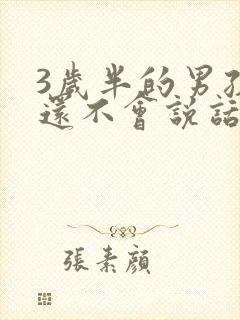 3歲半的男孩
還不會說話
張素顏